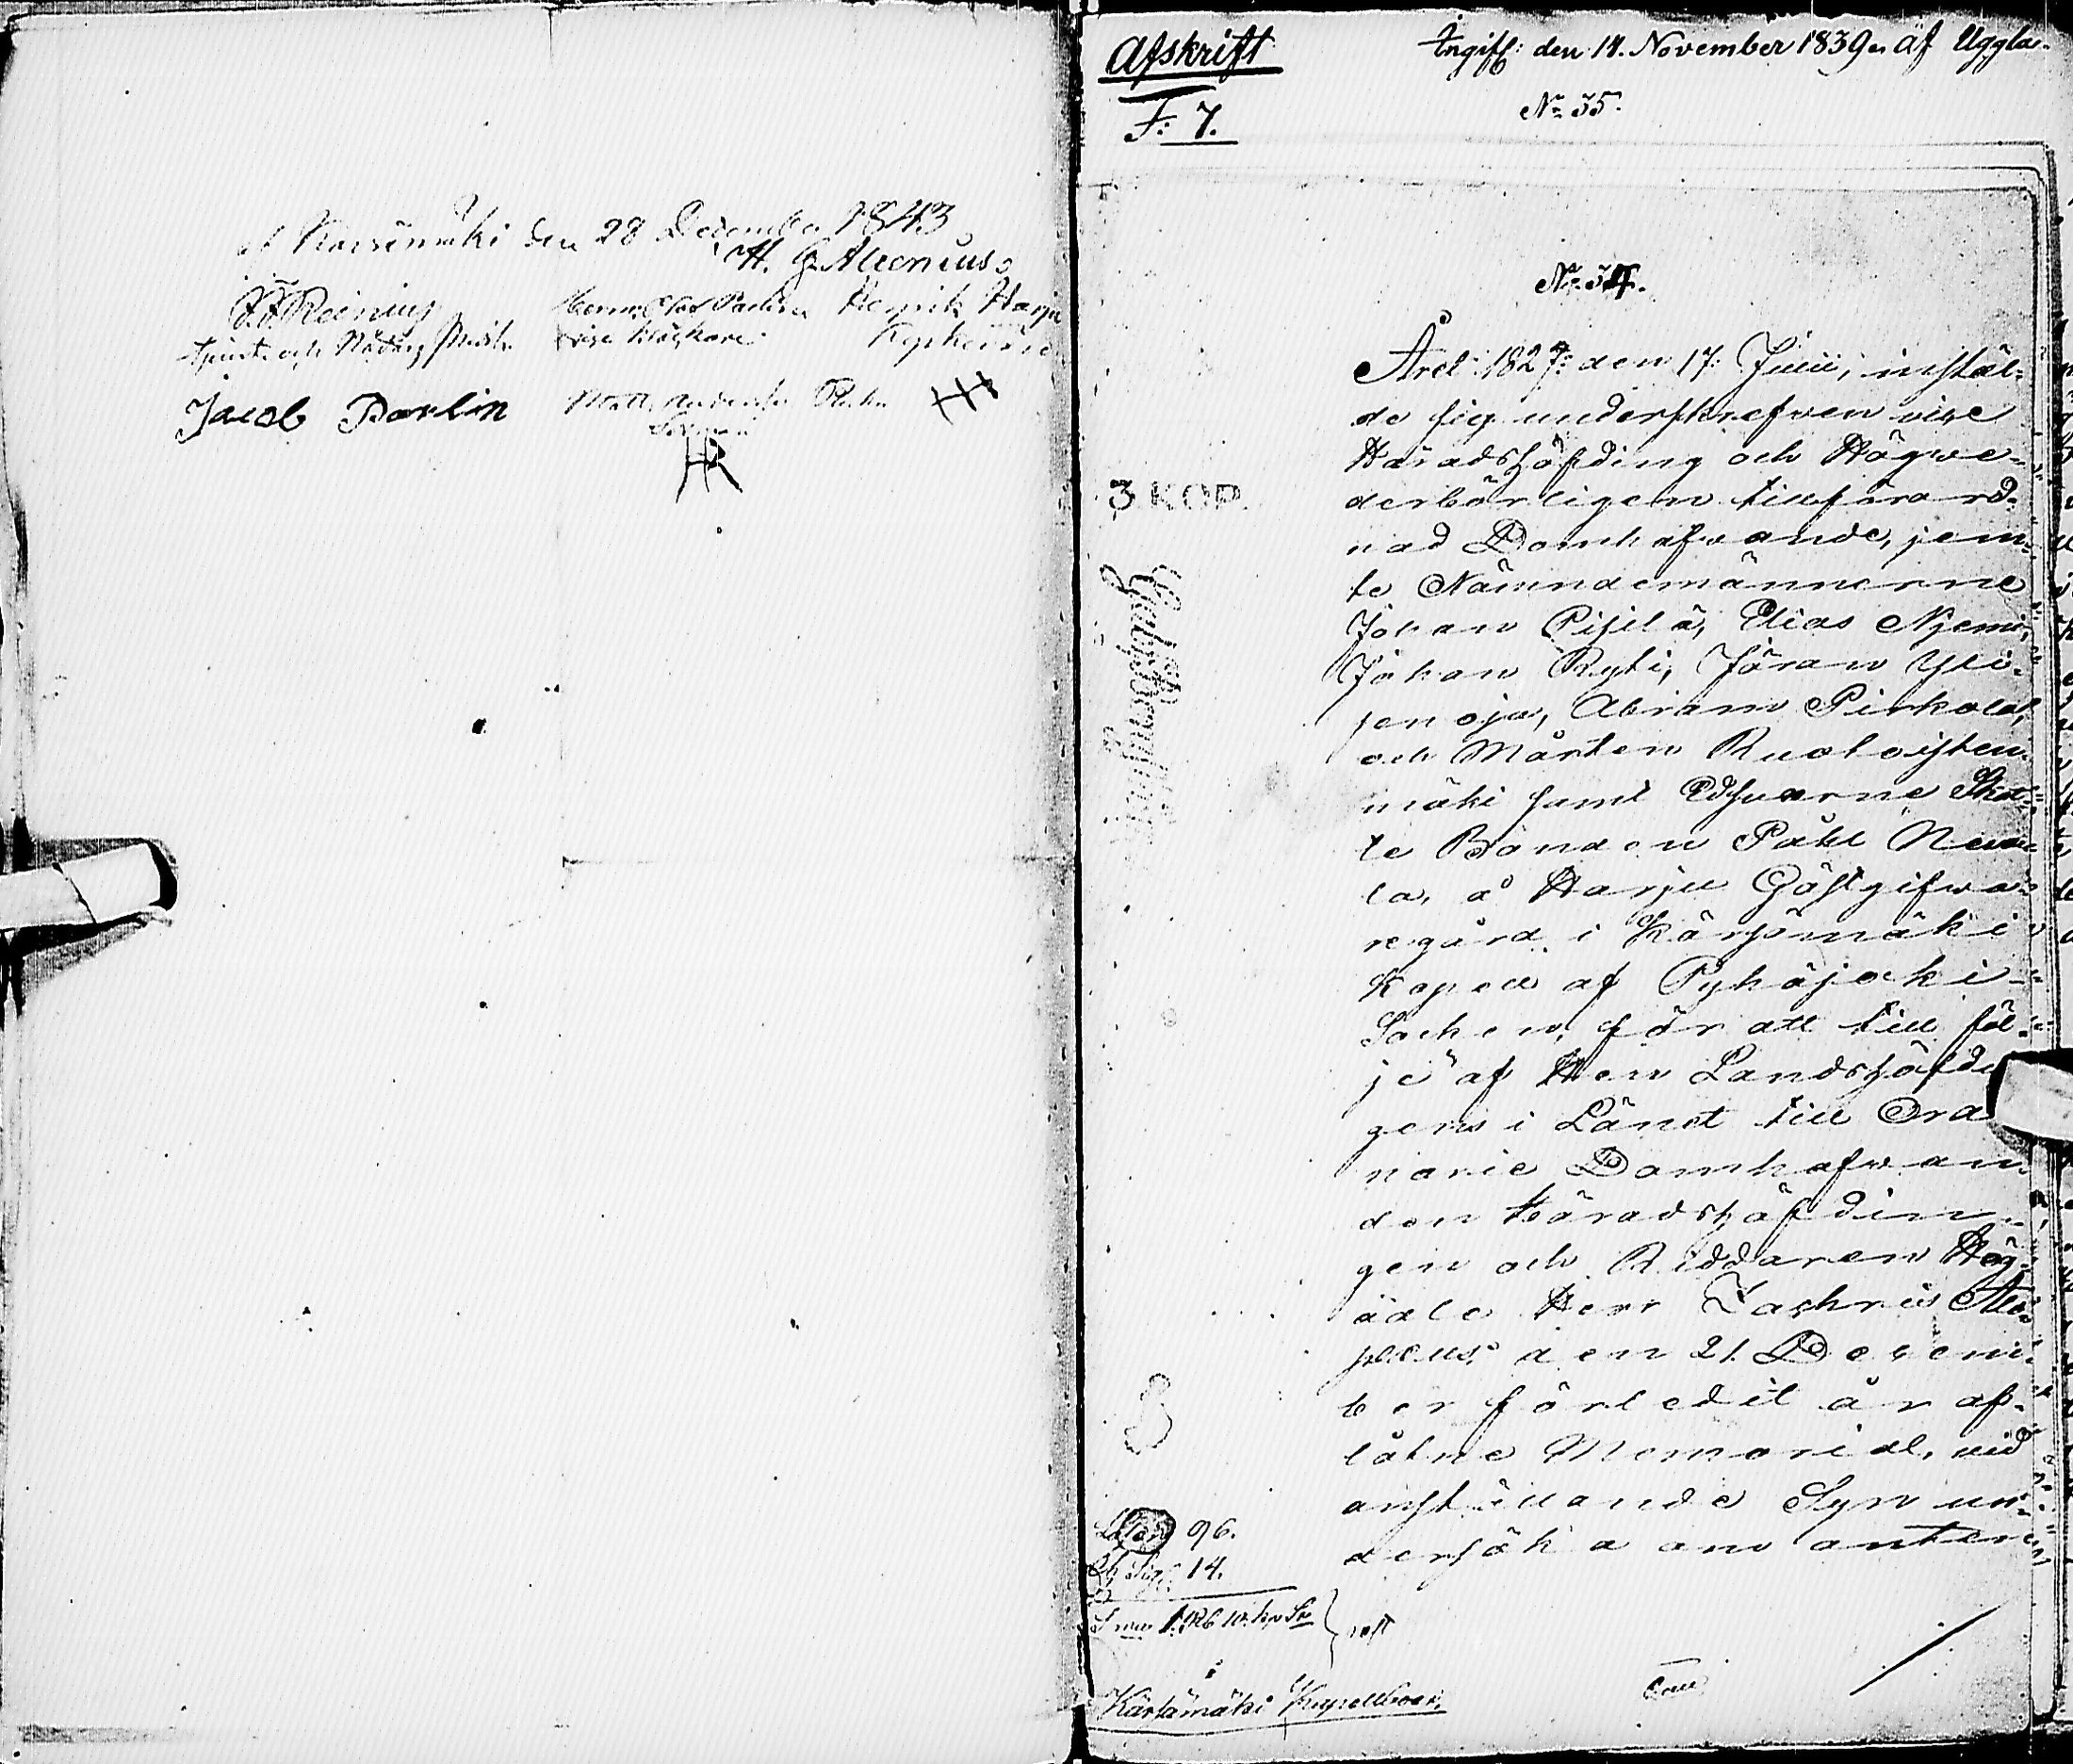 Kärsämäki den 28 December 1843
H. G. Alcenius
Henrik Harju
Jacob Parlin
HR
Afskrift
Ingifl: den 14. November 1839 af Uggla.
F: 7.
No 35.
No 34.
Året 1827: den 17: Junii, instäl-
de sig underskrefven vice
Häradshöfding och Högve-
derbörligen tillförord-
nad Domhafvande, jem-
te Nämndemännerne
Johan Pisilä, Elias Njemi,
Johan Ryti, Jöran Yli-
jenoja, Abram Pirkola,
och Mårten Ruoloisten-
mäki samt Edsvorne Skat-
te Bonden Påhl
la, å Harju Gästgifva-
regård i Kärsämäki
Kapell af Pyhäjoki
Sochen, för att till föl-
je af Herr Landshöfdin
gens i Länet till Ordi
narie Domhafvan
den Häradshöfdin-
gen och Riddaren Hög-
ädle Herr Zachris
den 21. Decem-
ber förledit år af-
låtne Memorial, vid
anställande Syn un-
dersöka om anten
3 KOP.
Lösen 96.
Ch Sigl 14.
Kärsämäki Kapellboer.